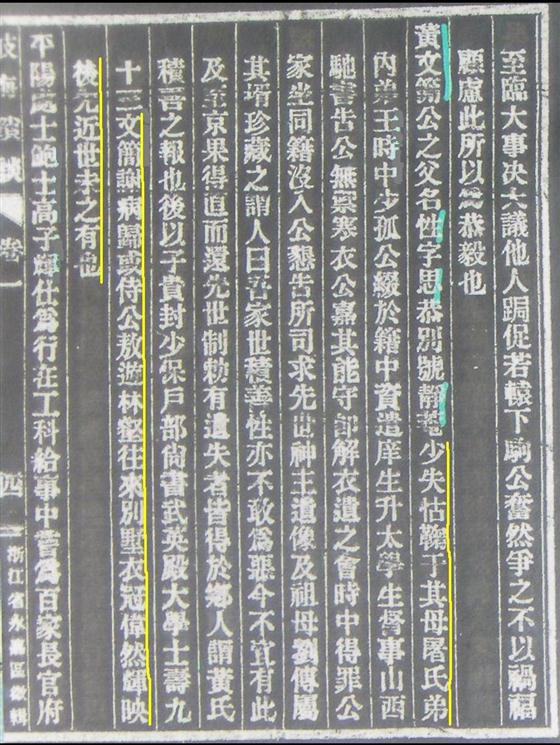 至臨大事決大議他人跼促若轅下駒公奮然爭之不以禍福
顧慮此所以爲恭毅也
黃文簡公之父名性字思恭別號靜菴少失怙鞠于其母屠氏弟
內弟王時中少孤公綴於籍中資遣庠生升太學生督事山西
馳書告公無禦寒衣公嘉其能守卽解衣遺之會時中得罪公
家坐同籍沒入公懇告所司求先世神主遺像及祖母劉傅屬
其壻珍藏之謂人曰吾家世積善性亦不敢爲惡今不宜有此
及至京果得直而還先世制勅有遺失者皆得於鄉人謂黃氏
積善之報也後以子貴封少保戶部尙書武英殿大學士壽九
十文簡謝病歸或侍公敖遊林壑往來別墅衣冠偉然輝映
後先近世未之有也
平陽處士鮑士高子輝仕爲行在工科給事中嘗爲百家長官府
岐海瑣談 卷一 四 浙江省永嘉區徵輯